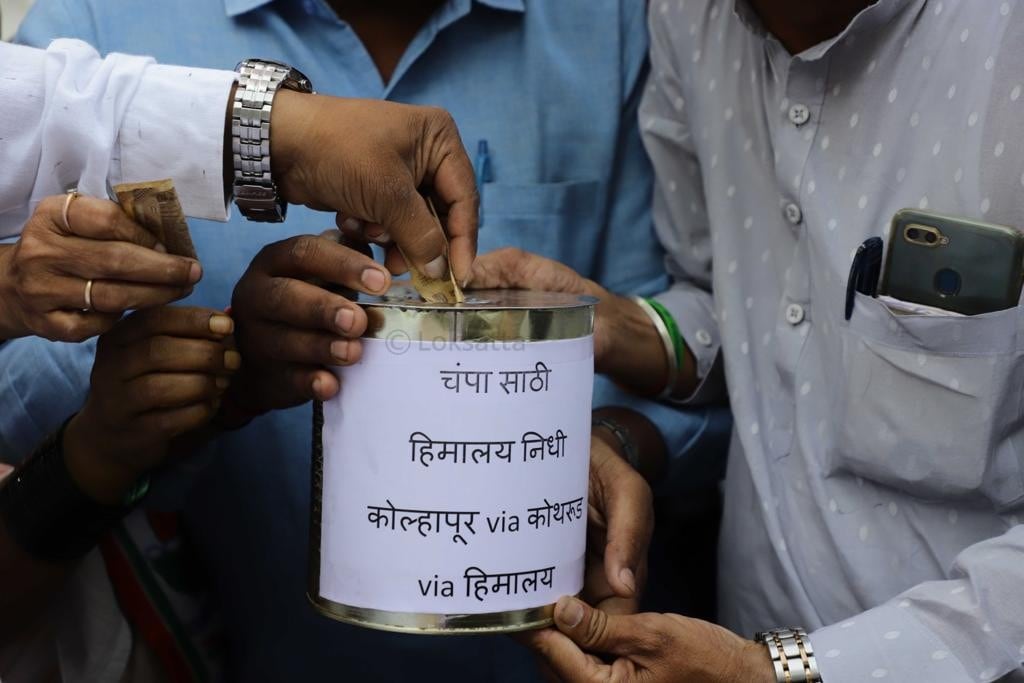 © Loksatta
चंपा साठी
हिमालय निधी
कोल्हापूर via कोथरूड
via हिमालय